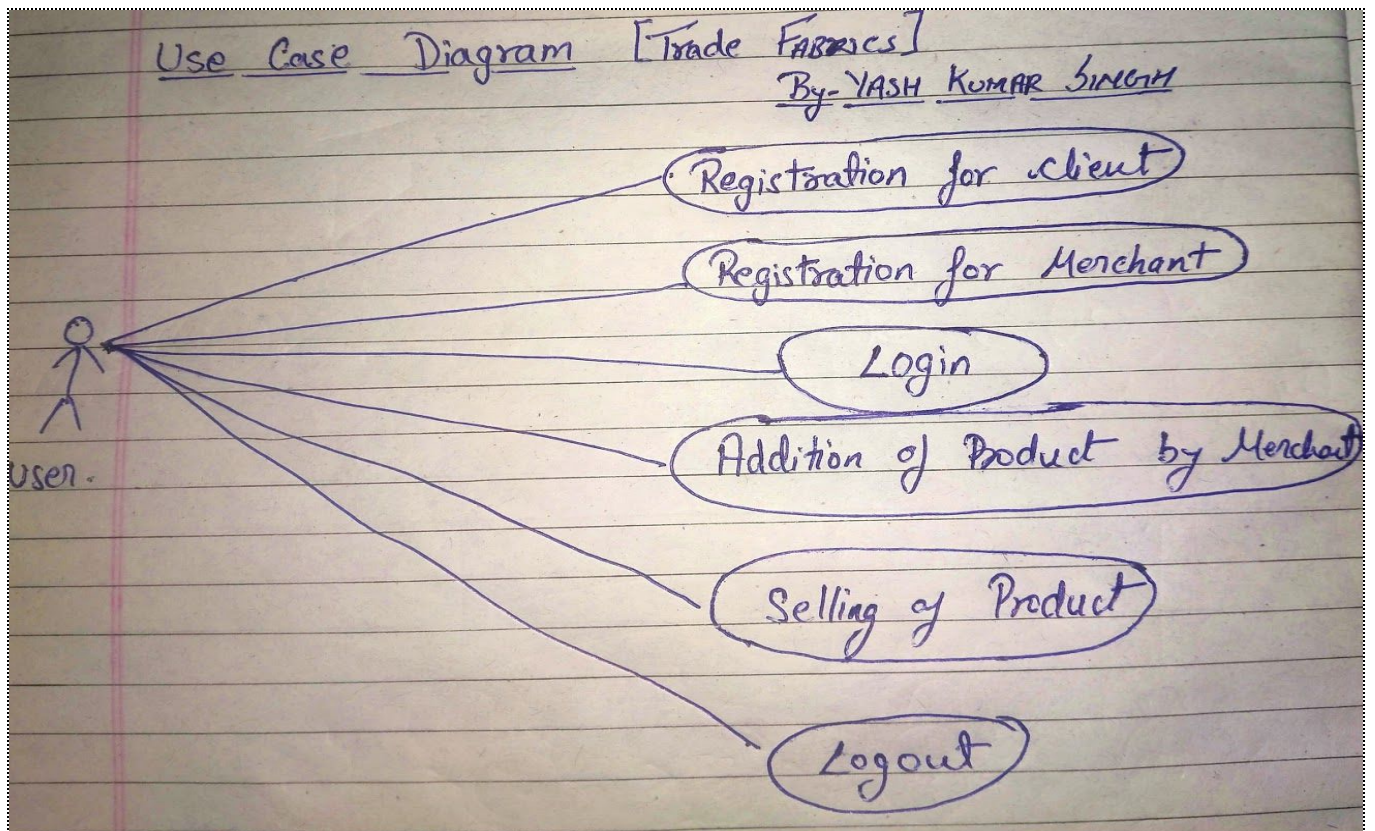 Use Case Diagram [Trade FABRICS]
By- YASH KUMAR SINGH
Registration for client
Registration for Merchant
Login
Addition of Product by Merchant
User.
Selling of Product
Logout